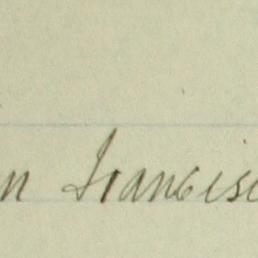 n Francis